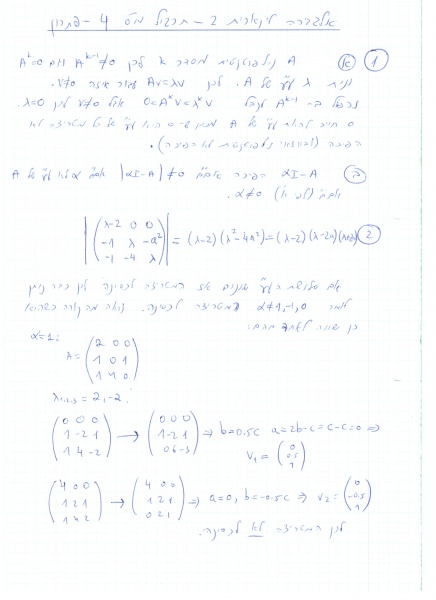 אלגברה לינארית 2 - תרגול מס 4 - פתרון
① א) A נילפוטנטית מסדר k לכן A^{k-1}≠0 וגם A^k=0
נניח λ ע"ע של A. לכן Av=λv עבור איזה v≠0.
נכפל ב- A^{k-1} לקבל 0=A^k v=λ^k v אבל v≠0 לכן λ=0.
0 חייב להיות ע"ע של A מכיוון ש-0 הוא ע"ע של כל מטריצה לא
הפיכה (ובוודאי נילפוטנטית לא הפיכה).
ב) αI-A הפיכה אמ"מ |αI-A|≠0 אמ"מ α לא ע"ע של A
אמ"מ (לפי א') α≠0.
② |(λ-2 0 0
-1 λ -a²
-1 -4 λ)| = (λ-2)(λ²-4a²) = (λ-2)(λ-2a)(λ+2a)
אם שלושת הע"ע שונים אז המטריצה לכסינה. לכן כבר ניתן
לומר α≠1,-1,0 המטריצה לכסינה. נראה מה קורה כשהוא
כן שווה לאחד מהם:
α=1:
A= (2 0 0
1 0 1
1 4 0)
λ_{1,2,3} = 2,-2.
(0 0 0
1 -2 1
1 4 -2) → (0 0 0
1 -2 1
0 6 -3) ⇒ b=0.5c a=2b-c=c-c=0 ⇒
V₁ = (0
0.5
1)
(4 0 0
1 2 1
1 4 2) → (4 0 0
1 2 1
0 2 1) ⇒ a=0, b=-0.5c ⇒ v₂ = (0
-0.5
1)
לכן המטריצה לא לכסינה.